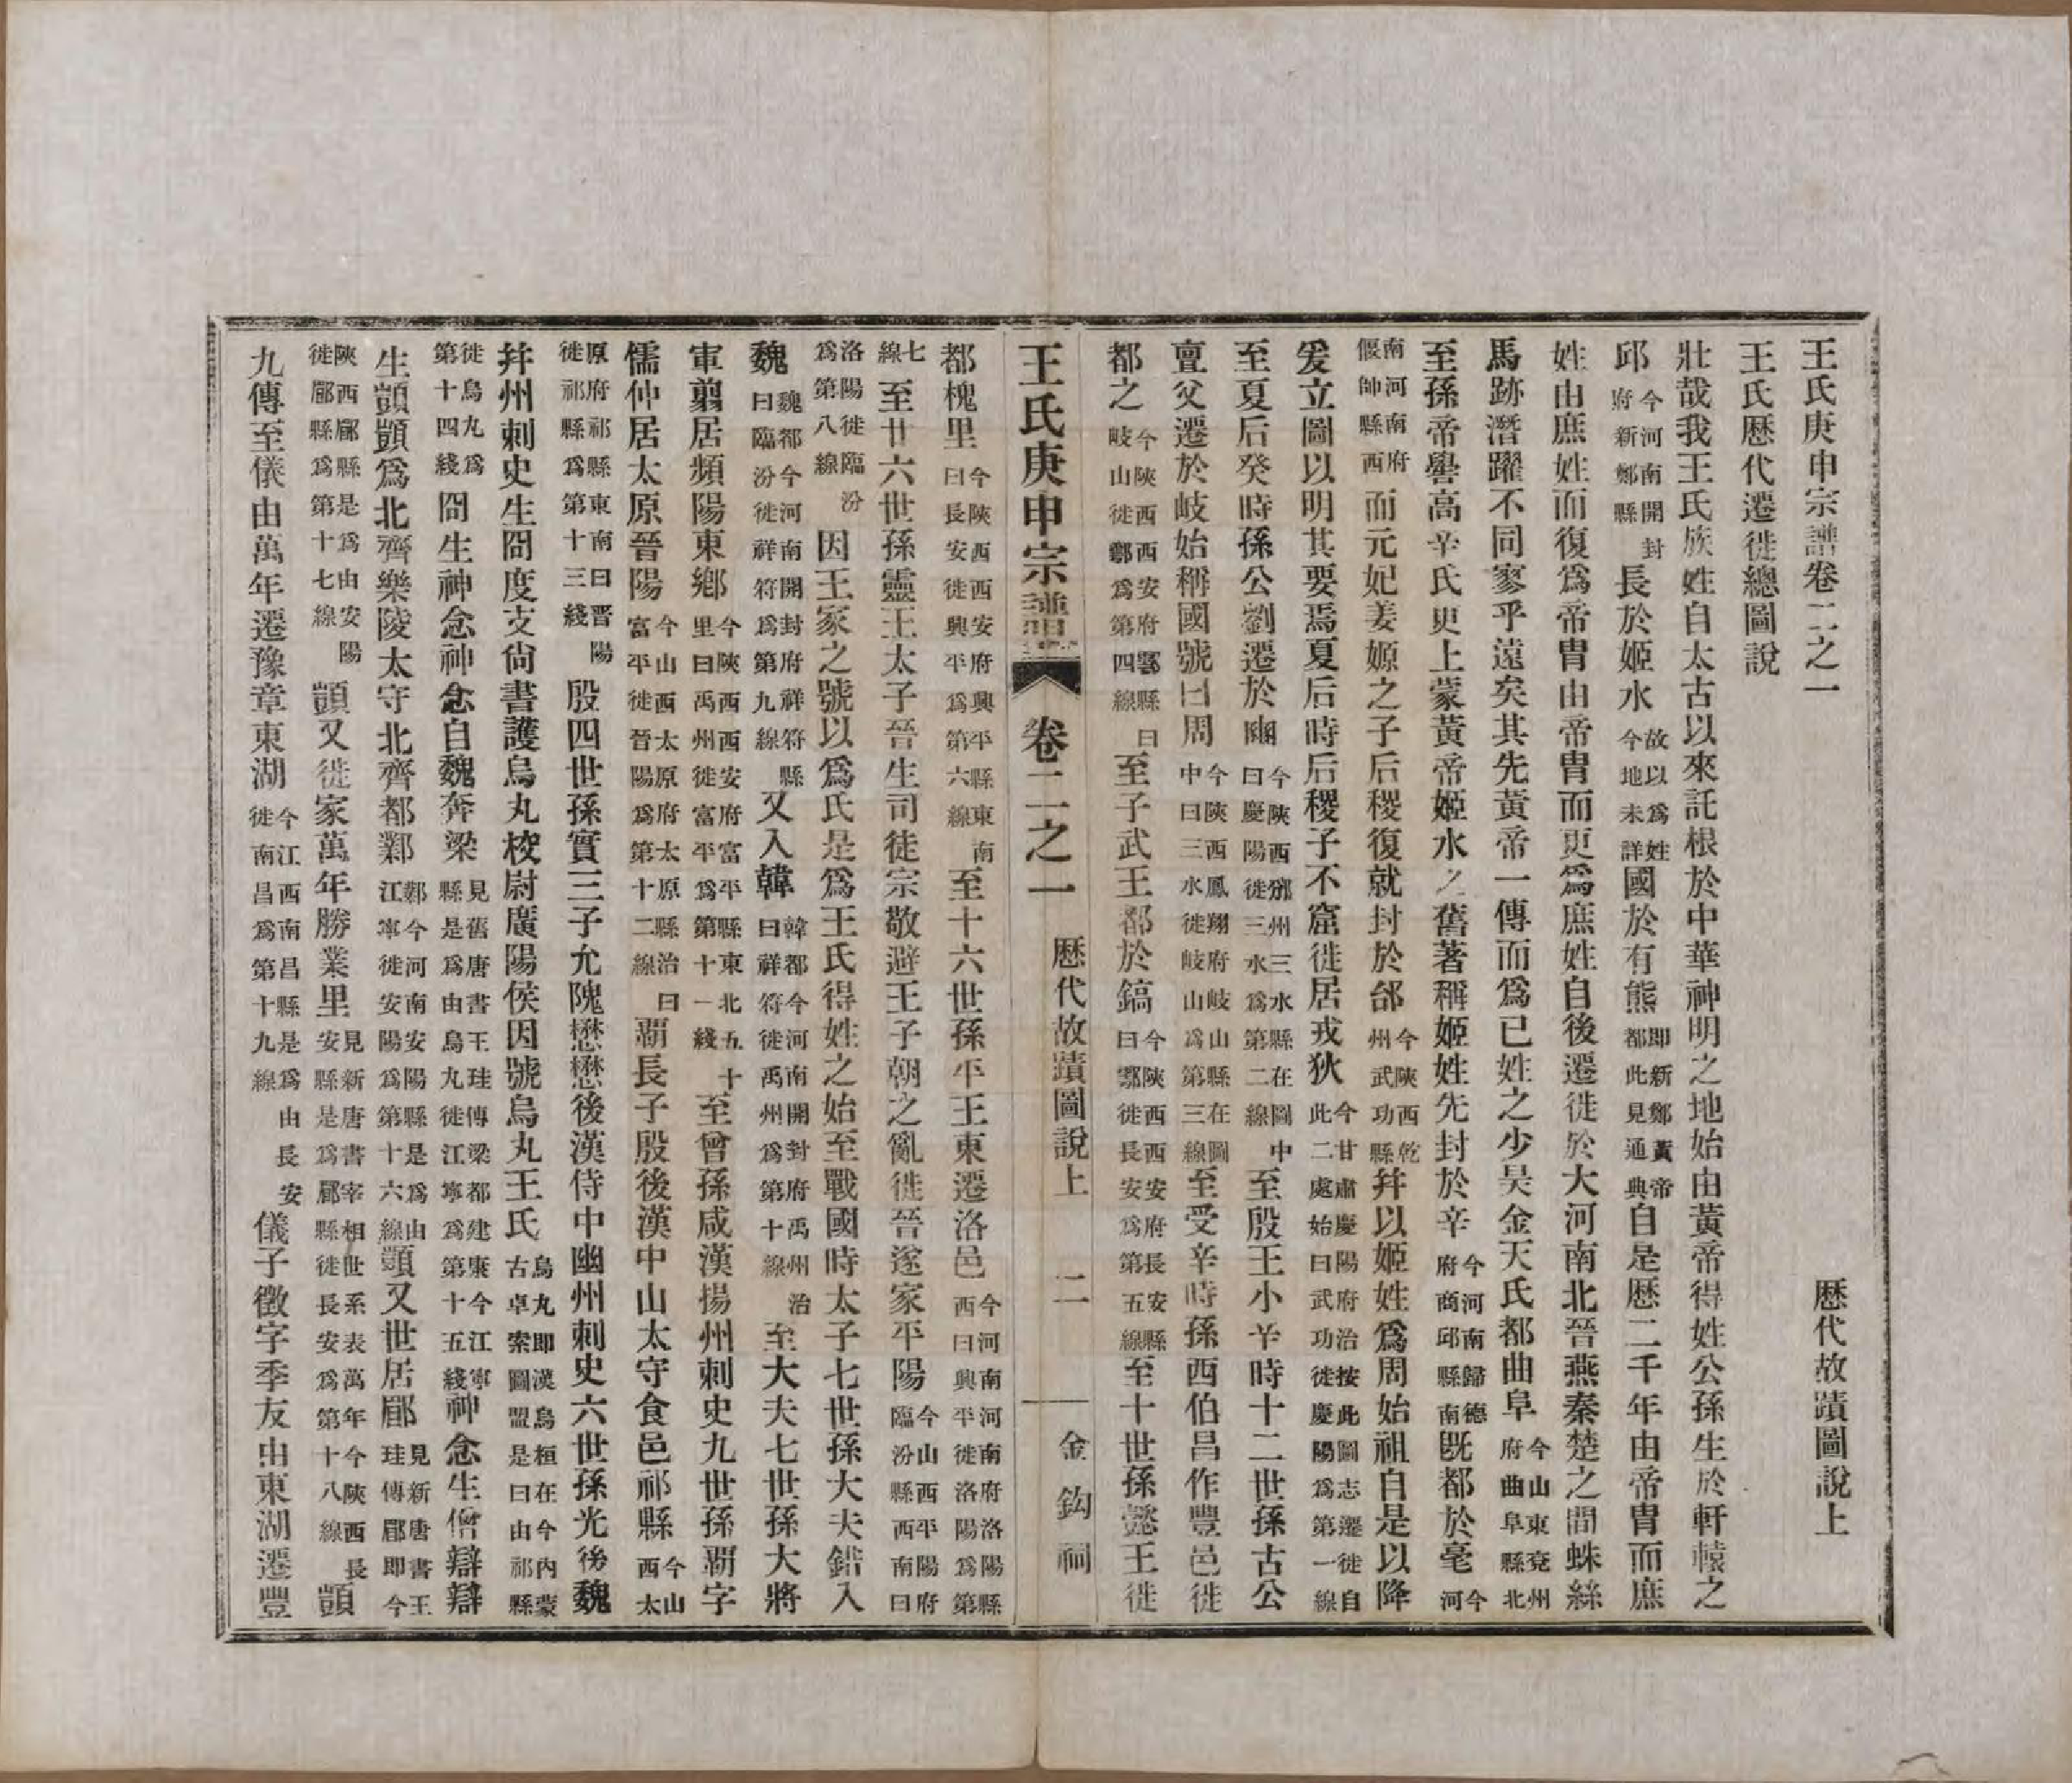 王氏庚申宗譜卷二之一　歷代故蹟圖說上
王氏歷代遷徙總圖說
壯哉我王氏族姓自太古以來託根於中華神明之地始由黃帝得姓公孫生於軒轅之
邱今河南開封府新鄭縣長於姬水故以爲姓今地未詳國於有熊即新鄭黃帝都此見通典自是歷二千年由帝冑而庶
姓由庶姓而復爲帝冑由帝冑而更爲庶姓自後遷徙於大河南北晉燕秦楚之間蛛絲
馬跡潛躍不同寥乎遠矣其先黃帝一傳而爲已姓之少昊金天氏都曲阜今山東兗州府曲阜縣北
至孫帝嚳高辛氏更上蒙黃帝姬水之舊著稱姬姓先封於辛今河南歸德府商邱縣南旣都於亳今河
南河南府偃師縣西而元妃姜嫄之子后稷復就封於邰今陝西乾州武功縣幷以姬姓爲周始祖自是以降
爰立圖以明其要焉夏后時后稷子不窟徙居戎狄今甘肅慶陽府治按此圖志遷徙自此二處始曰武功徙慶陽爲第一線
至夏后癸時孫公劉遷於豳今陝西邠州三水縣在圖中曰慶陽徙三水爲第二線至殷王小辛時十二世孫古公
亶父遷於岐始稱國號曰周今陝西鳳翔府岐山縣在圖中曰三水徙岐山爲第三線至受辛時孫西伯昌作豐邑徙
都之今陝西西安府鄠縣曰岐山徙鄠爲第四線至子武王都於鎬今陝西西安府長安縣曰鄠徙長安爲第五線至十世孫懿王徙
王氏庚申宗譜　卷二之一　歷代故蹟圖說上　二　金鈎祠
都槐里今陝西西安府興平縣東南曰長安徙興平爲第六線至十六世孫平王東遷洛邑今河南河南府洛陽縣西曰興平徙洛陽爲第
七線至廿六世孫靈王太子晉生司徒宗敬避王子朝之亂徙晉遂家平陽今山西平陽府臨汾縣西南曰
洛陽徙臨汾爲第八線因王家之號以爲氏是爲王氏得姓之始至戰國時太子七世孫大夫錯入
魏魏都今河南開封府祥符縣曰臨汾徙祥符爲第九線又入韓韓都今河南開封府禹州治曰祥符徙禹州爲第十線至大夫七世孫大將
軍翦居頻陽東鄉今陝西西安府富平縣東北五十里曰禹州徙富平爲第十一綫至曾孫咸漢揚州刺史九世孫霸字
儒仲居太原晉陽今山西太原府太原縣治曰富平徙晉陽爲第十二線霸長子殷後漢中山太守食邑祁縣今山西太
原府祁縣東南曰晋陽徙祁縣爲第十三綫殷四世孫實三子允隗懋懋後漢侍中幽州刺史六世孫光後魏
幷州刺史生冏度支尙書護烏丸校尉廣陽侯因號烏丸王氏烏丸即漢烏桓在今內蒙古卓索圖盟是曰由祁縣
徙烏丸爲第十四綫冏生神念神念自魏奔梁見舊唐書王珪傳梁都建康今江寧縣是爲由烏丸徙江寧爲第十五綫神念生僧辯辯
生顗顗爲北齊樂陵太守北齊都鄴鄴今河南安陽縣是爲由江寧徙安陽爲第十六線顗又世居郿見新唐書王珪傳郿即今
陝西郿縣是爲由安陽徙郿縣爲第十七線顗又徙家萬年勝業里見新唐書宰相世系表萬年今陝西長安縣是爲郿縣徙長安爲第十八線顗
九傳至儀由萬年遷豫章東湖今江西南昌縣是爲由長安徙南昌爲第十九線儀子徵字季友由東湖遷豐